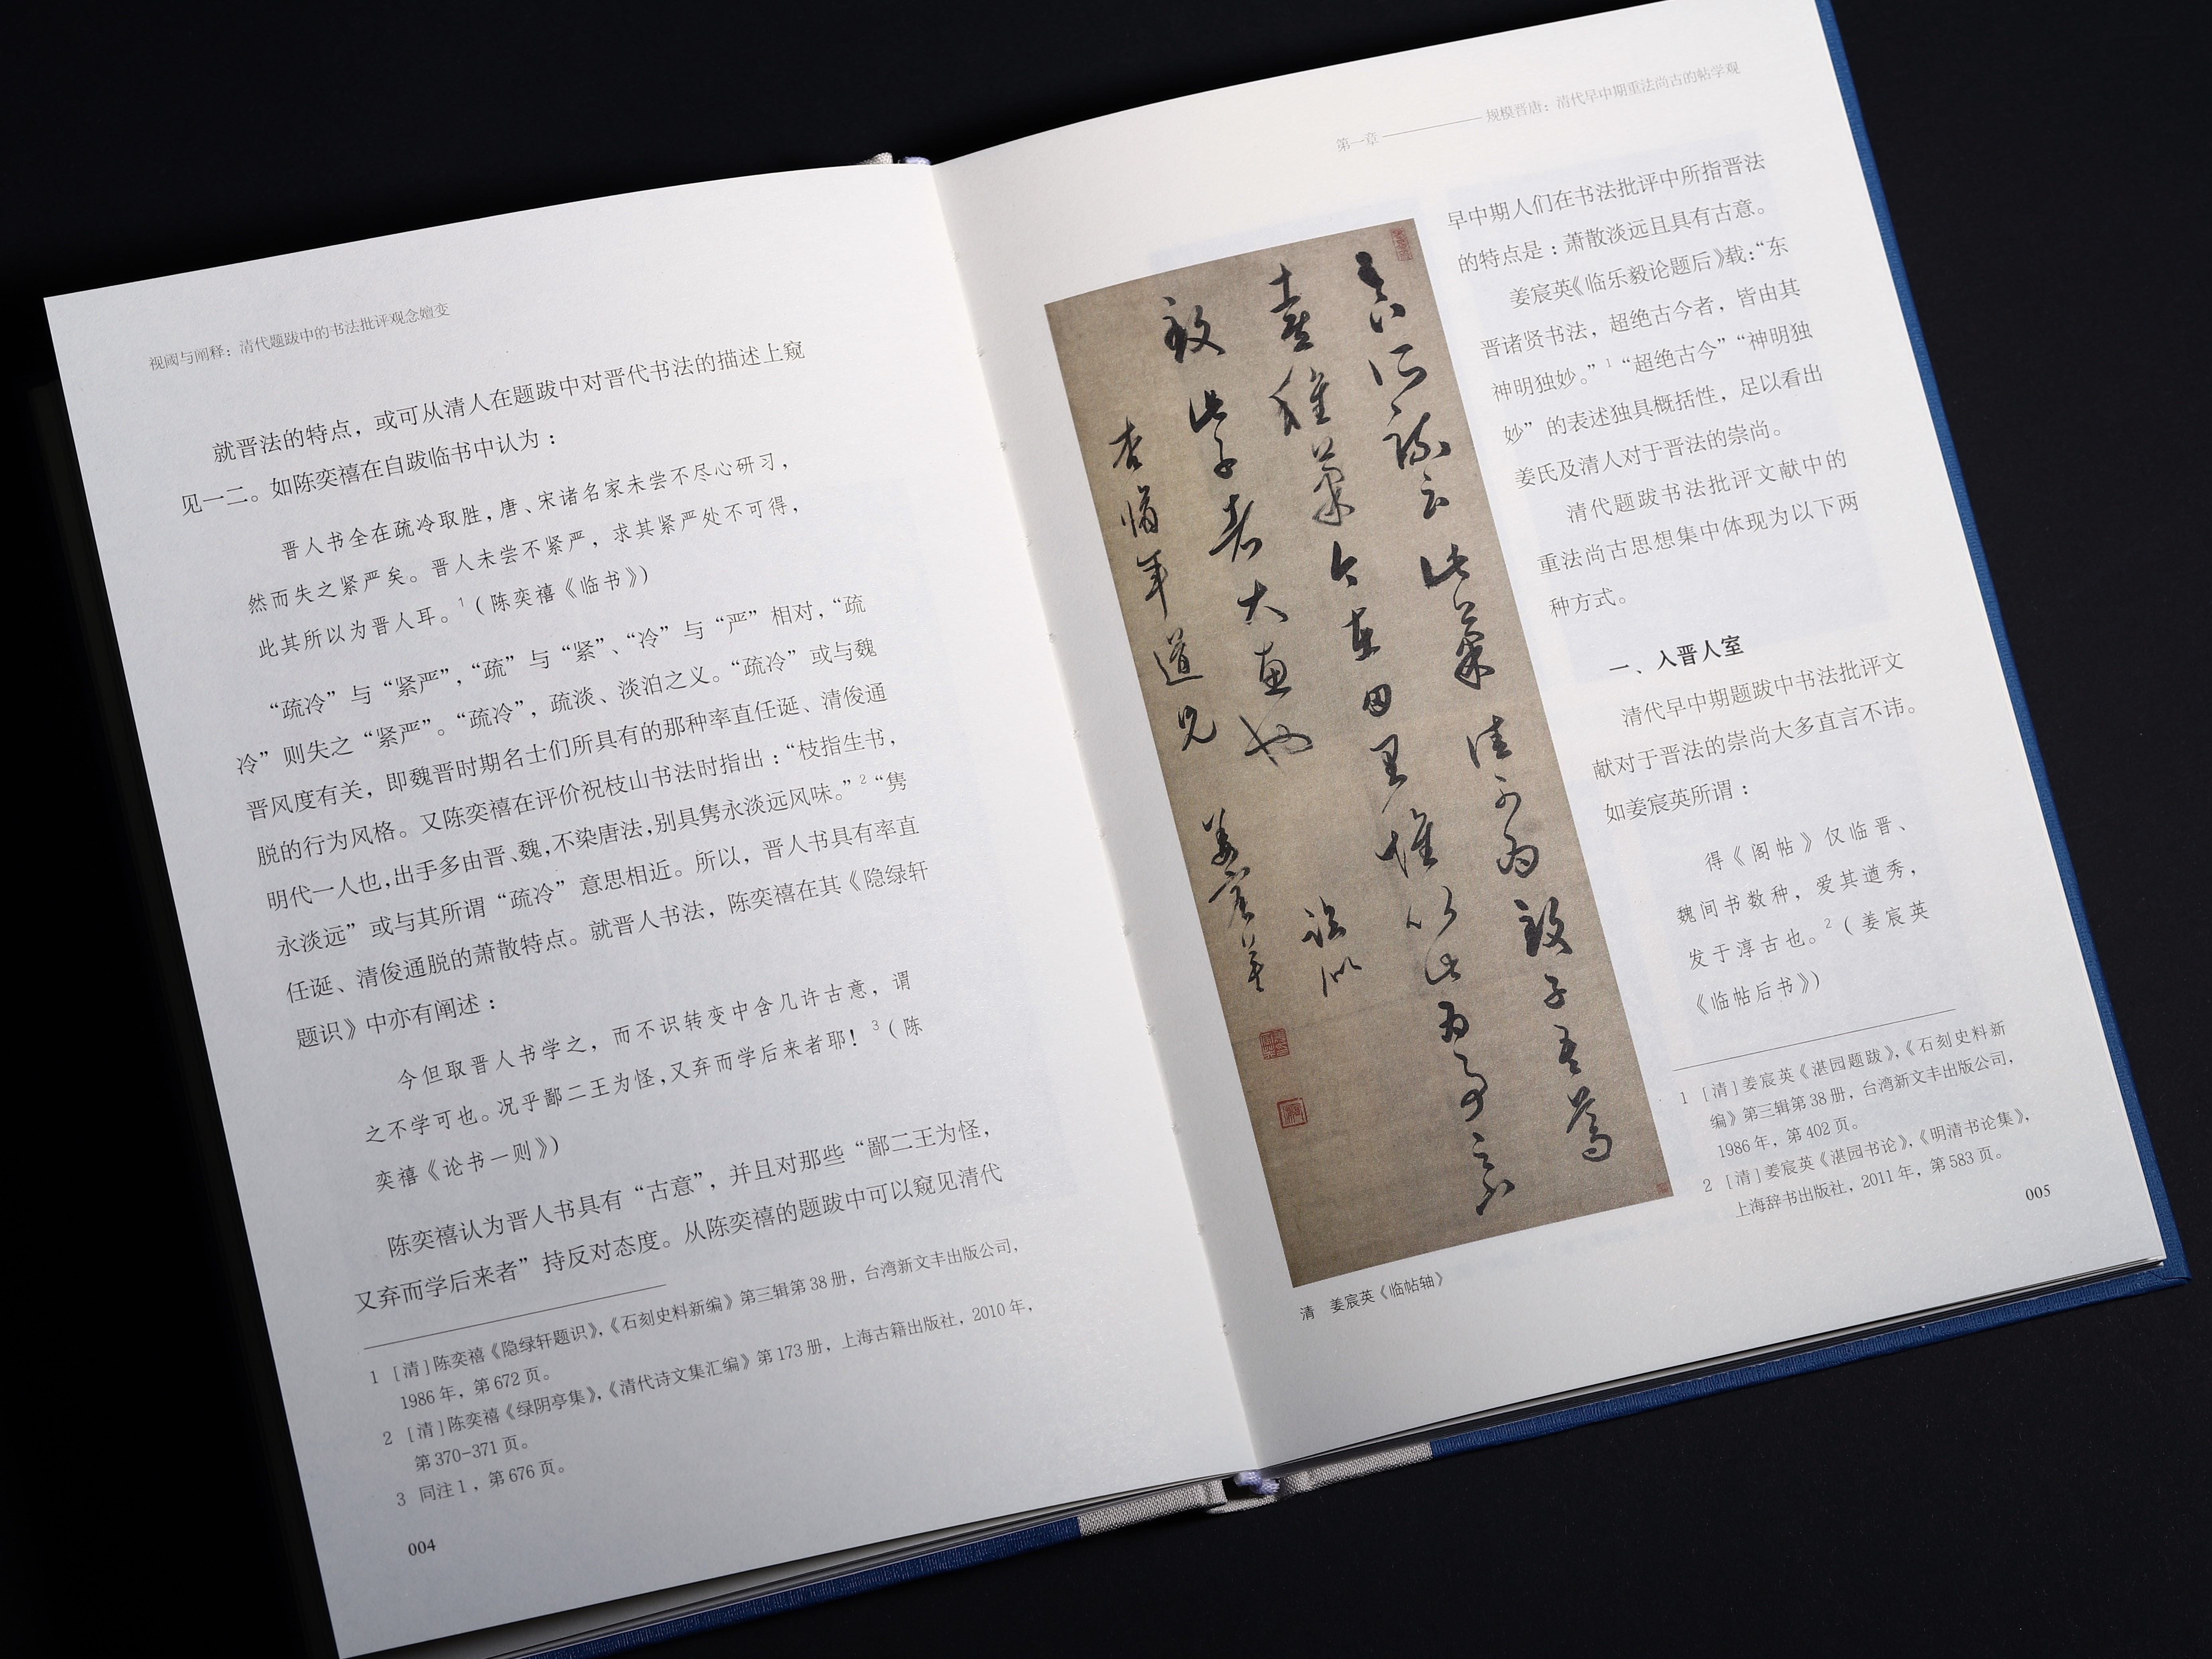 视阈与阐释：清代题跋中的书法批评观念嬗变
就晋法的特点，或可从清人在题跋中对晋代书法的描述上窥
见一二。如陈奕禧在自跋临书中认为：
晋人书全在疏冷取胜，唐、宋诸名家未尝不尽心研习，
然而失之紧严矣。晋人未尝不紧严，求其紧严处不可得，
此其所以为晋人耳。1（陈奕禧《临书》）
“疏冷”与“紧严”，“疏”与“紧”、“冷”与“严”相对，“疏
冷”则失之“紧严”。“疏冷”，疏淡、淡泊之义。“疏冷”或与魏
晋风度有关，即魏晋时期名士们所具有的那种率直任诞、清俊通
脱的行为风格。又陈奕禧在评价祝枝山书法时指出：“枝指生书，
明代一人也，出手多由晋、魏，不染唐法，别具隽永淡远风味。”2“隽
永淡远”或与其所谓“疏冷”意思相近。所以，晋人书具有率直
任诞、清俊通脱的萧散特点。就晋人书法，陈奕禧在其《隐绿轩
题识》中亦有阐述：
今但取晋人书学之，而不识转变中含几许古意，谓
之不学可也。况乎鄙二王为怪，又弃而学后来者耶！3（陈
奕禧《论书一则》）
陈奕禧认为晋人书具有“古意”，并且对那些“鄙二王为怪，
又弃而学后来者”持反对态度。从陈奕禧的题跋中可以窥见清代
1 [清]陈奕禧《隐绿轩题识》，《石刻史料新编》第三辑第38册，台湾新文丰出版公司，
1986年，第672页。
2 [清]陈奕禧《绿阴亭集》，《清代诗文集汇编》第173册，上海古籍出版社，2010年，
第370-371页。
3 同注1，第676页。
004
第一章 规模晋唐：清代早中期重法尚古的帖学观
早中期人们在书法批评中所指晋法
的特点是：萧散淡远且具有古意。
姜宸英《临乐毅论题后》载：“东
晋诸贤书法，超绝古今者，皆由其
神明独妙。”1“超绝古今”“神明独
妙”的表述独具概括性，足以看出
姜氏及清人对于晋法的崇尚。
清代题跋书法批评文献中的
重法尚古思想集中体现为以下两
种方式。
一、入晋人室
清代早中期题跋中书法批评文
献对于晋法的崇尚大多直言不讳。
如姜宸英所谓：
得《阁帖》仅临晋、
魏间书数种，爱其遒秀，
发于淳古也。2（姜宸英
《临帖后书》）
1 [清]姜宸英《湛园题跋》，《石刻史料新
编》第三辑第38册，台湾新文丰出版公司，
1986年，第402页。
2 [清]姜宸英《湛园书论》，《明清书论集》，
上海辞书出版社，2011年，第583页。
005
清 姜宸英《临帖轴》